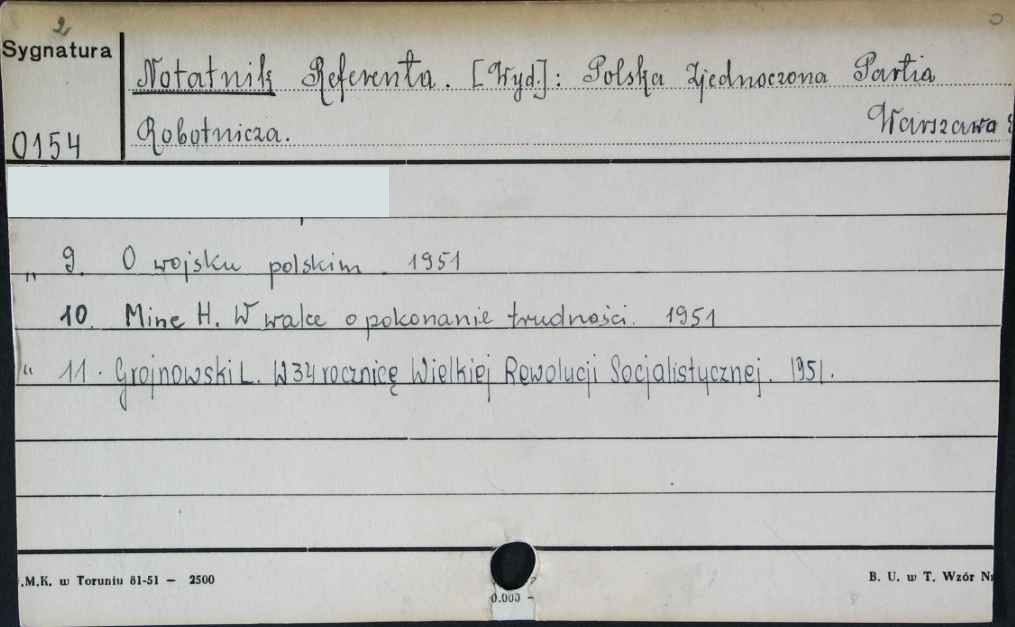 2
Sygnatura
Notatnik Referenta. [Wyd.]: Polska Zjednoczona Partia
0154
Robotnicza. Warszawa
„ 9. O wojsku polskim. 1951
10. Minc H. W walce o pokonanie trudności. 1951
„ 11. Grojnowski L. W 34 rocznicę Wielkiej Rewolucji Socjalistycznej. 1951.
.M.K. w Toruniu 81-51 — 2500
B. U. w T. Wzór
0.000 —